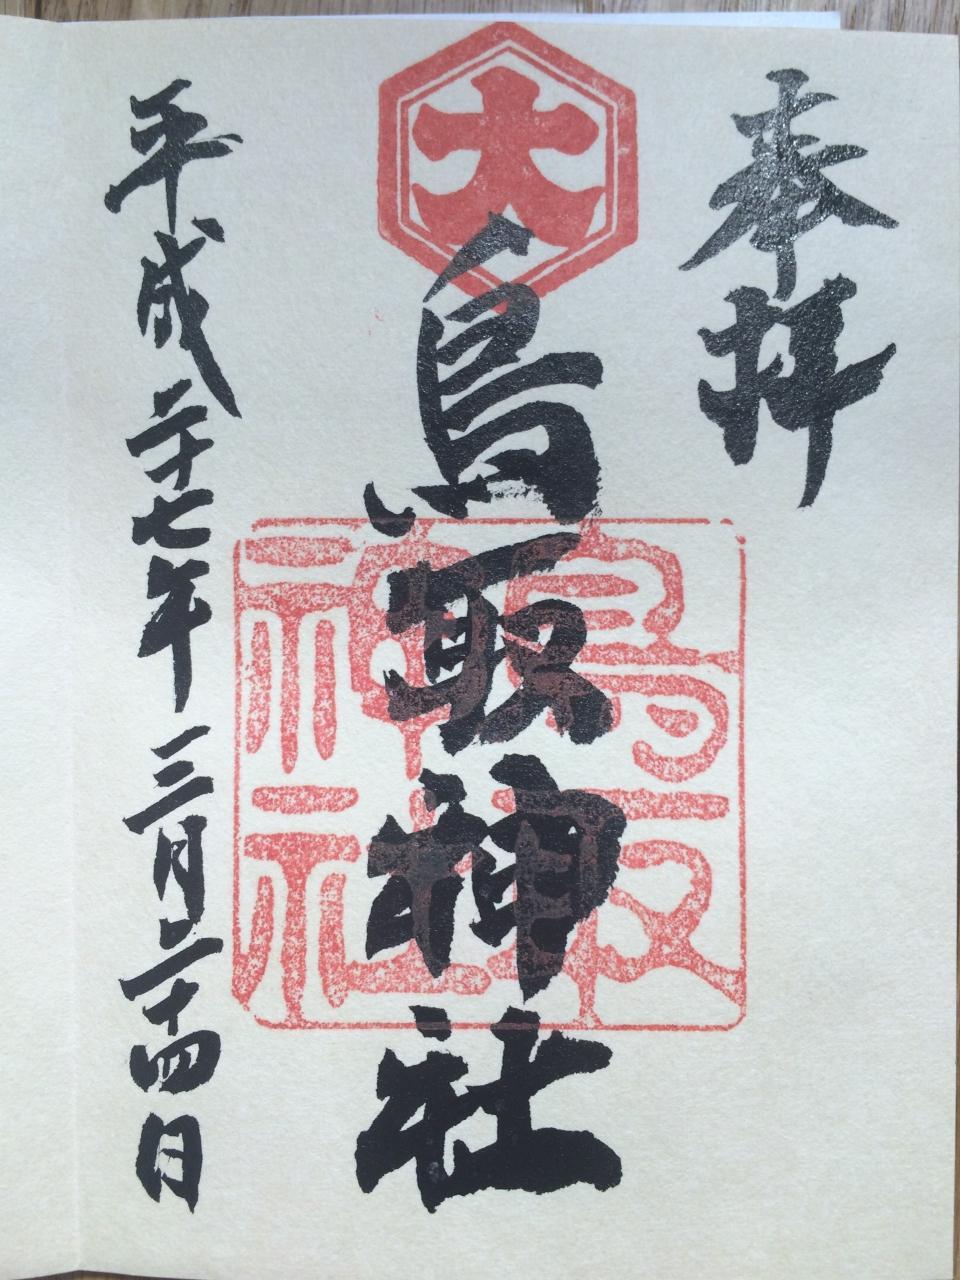 奉拝
大
鳥取神社
鳥取
神社
平成二十七年三月二十四日